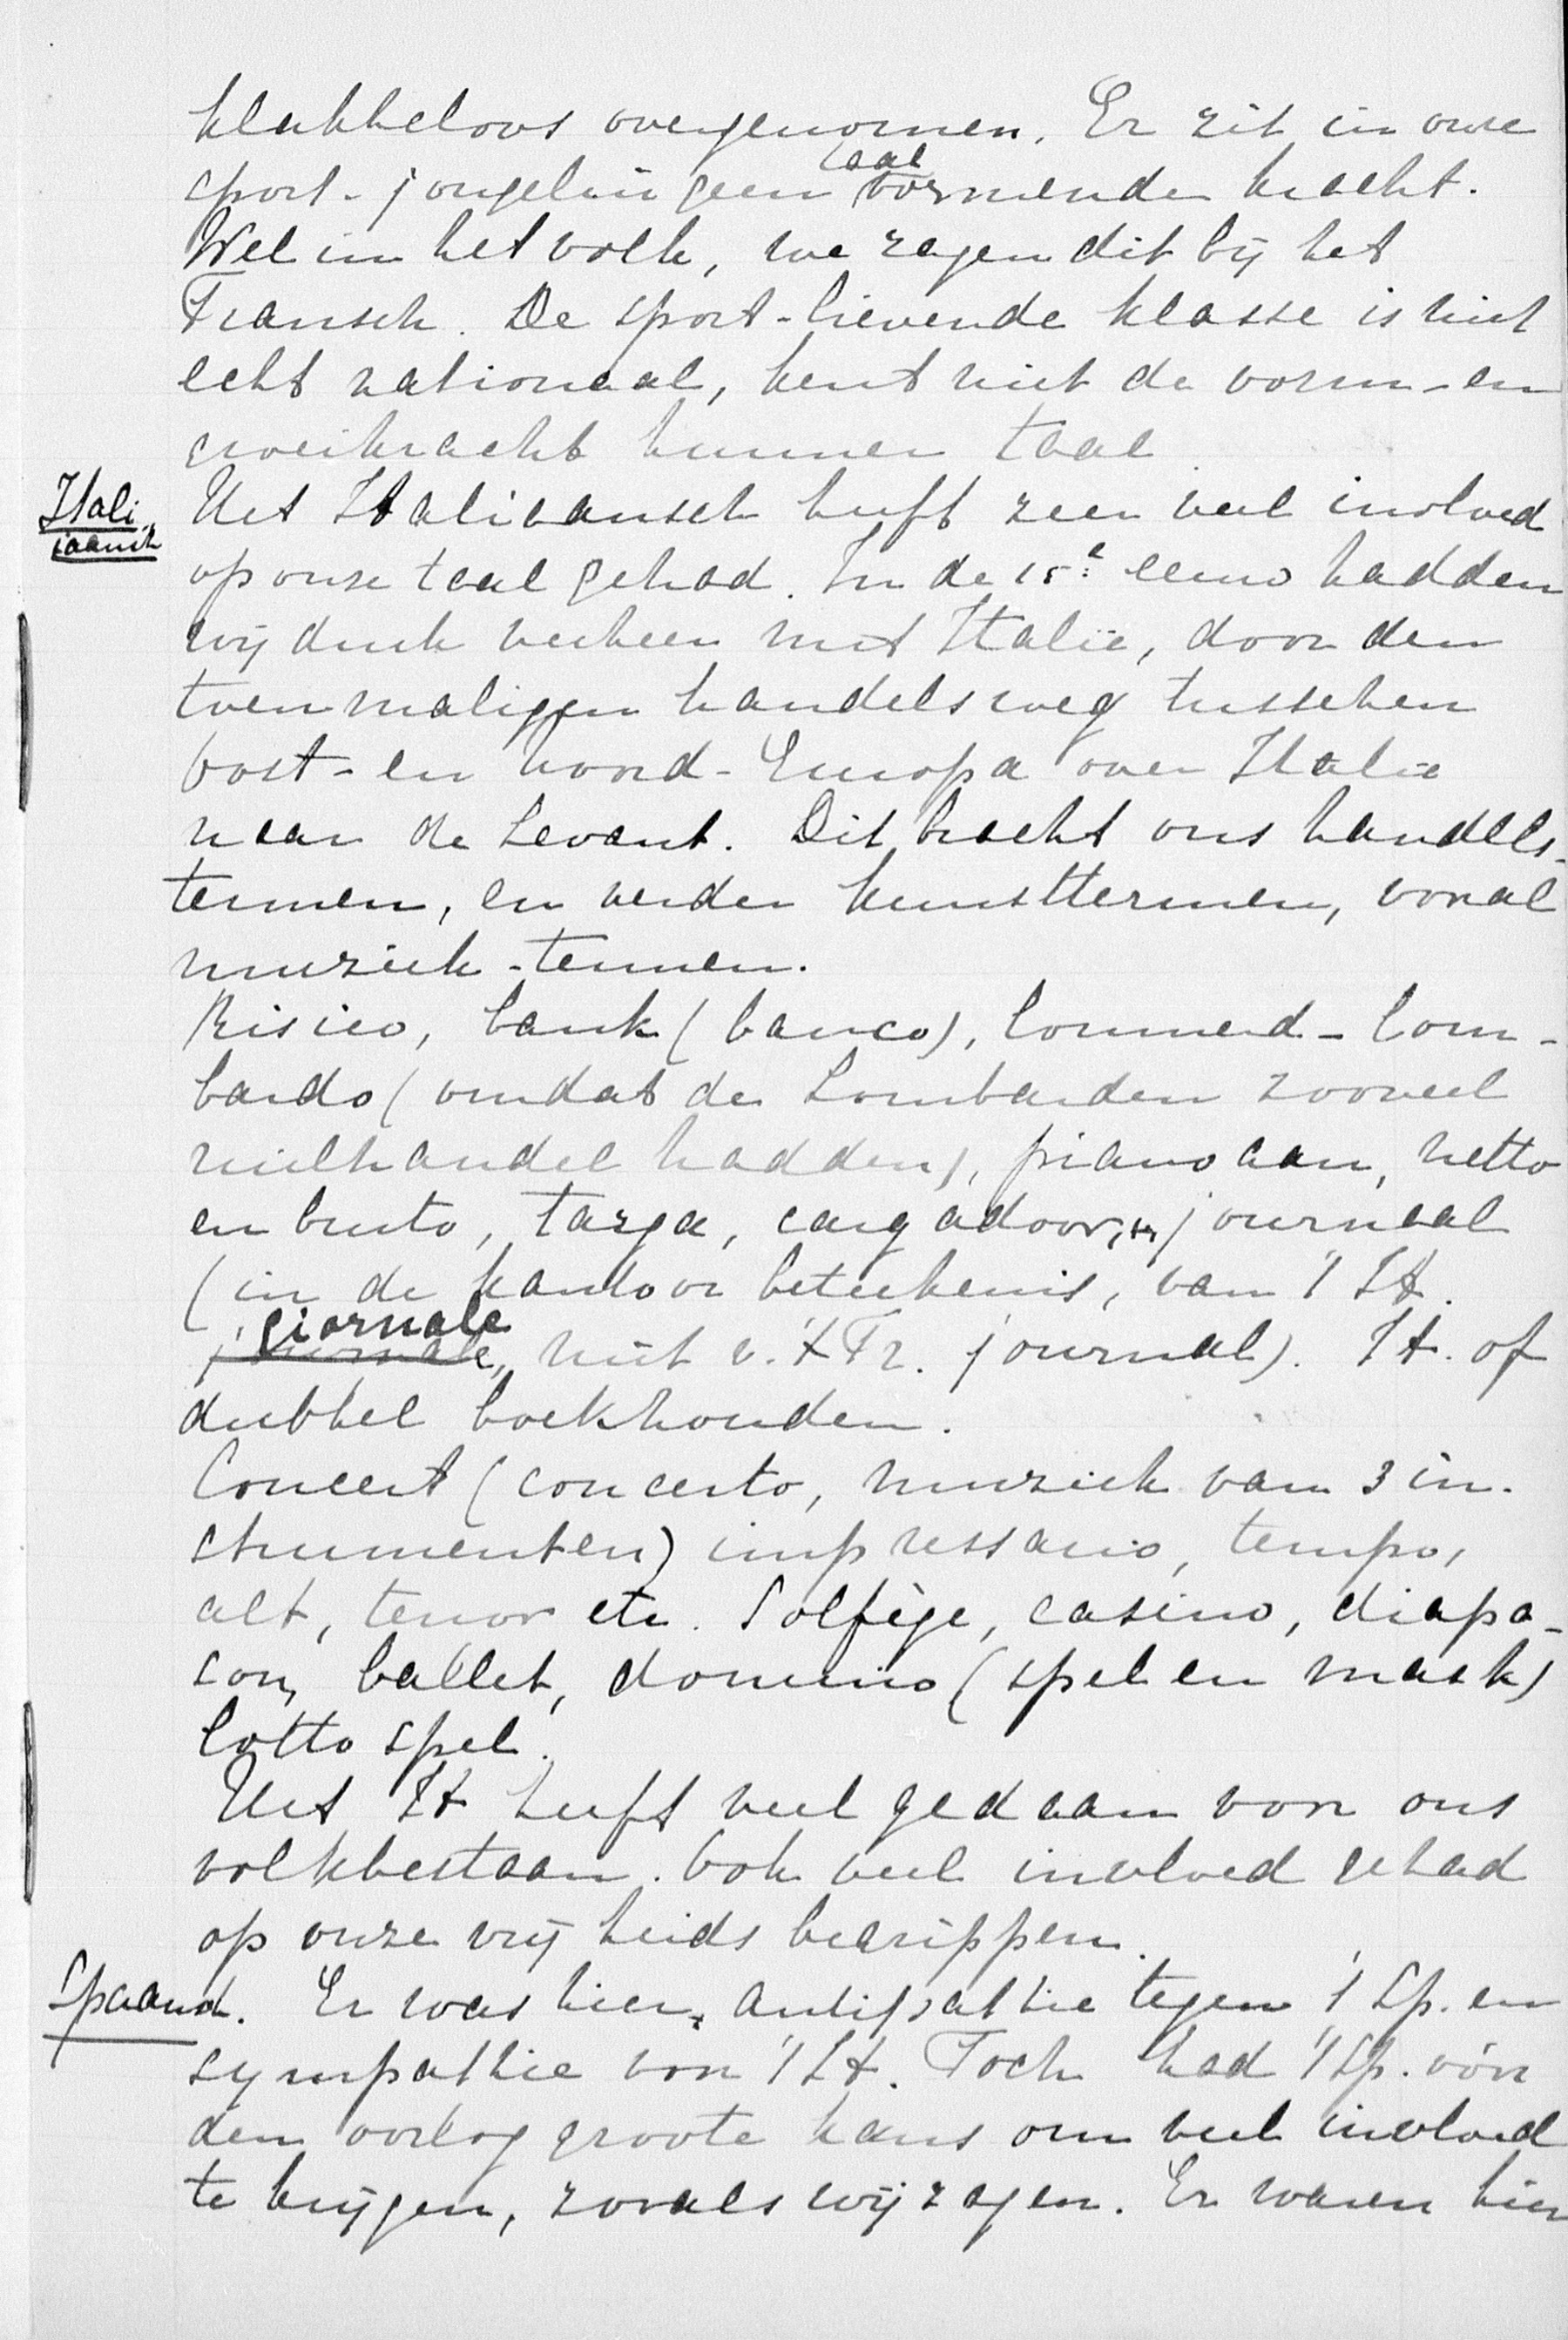 klakkeloos overgenomen. Er zit in onze
sport-jongelingeen taalvormende kracht.
Wel in het volk, we zagen dit bij het
Fransch. De sport-lievende klasse is niet
echt nationaal, kent niet de vorm- en
groeikracht hunner taal
Itali-
iaansch
Het Italiaansch heeft zeer veel invloed
op onze taal gehad. In de 15e eeuw hadden
wij druk verkeer met Italië, door den
toenmaligen handelsweg tusschen
Oost- en Noord-Europa over Italië
naar de Levant. Dit bracht ons handels-
termen, en verder kunsttermen, vooral
muziek-termen.
Risico, bank (banco), lommerd - lom-
bardo (omdat de Lombarden zooveel
ruilhandel hadden), piano aan, netto
en bruto, tarra, cargadoor, journaal
(in de kantoor beteekenis, van 't It.
giornale, niet v. 't Fr. journal). It. of
dubbel boekhouden.
Concert (concerto, muziek van 3 in-
strumenten) impressario, tempo,
alt, tenor etc. Solfège, casino, diapa-
son, ballet, domino (spel en mask)
lotto spel.
Het It heeft veel gedaan voor ons
volkbestaan. Ook veel invloed gehad
op onze vrijheids begrippen.
Spaansch. Er was hier antipathie tegen 't Sp. en
sympathie voor 't It. Toch had 't Sp. vóór
den oorlog groote kans om veel invloed
te krijgen, zooals wij zagen. Er waren hier